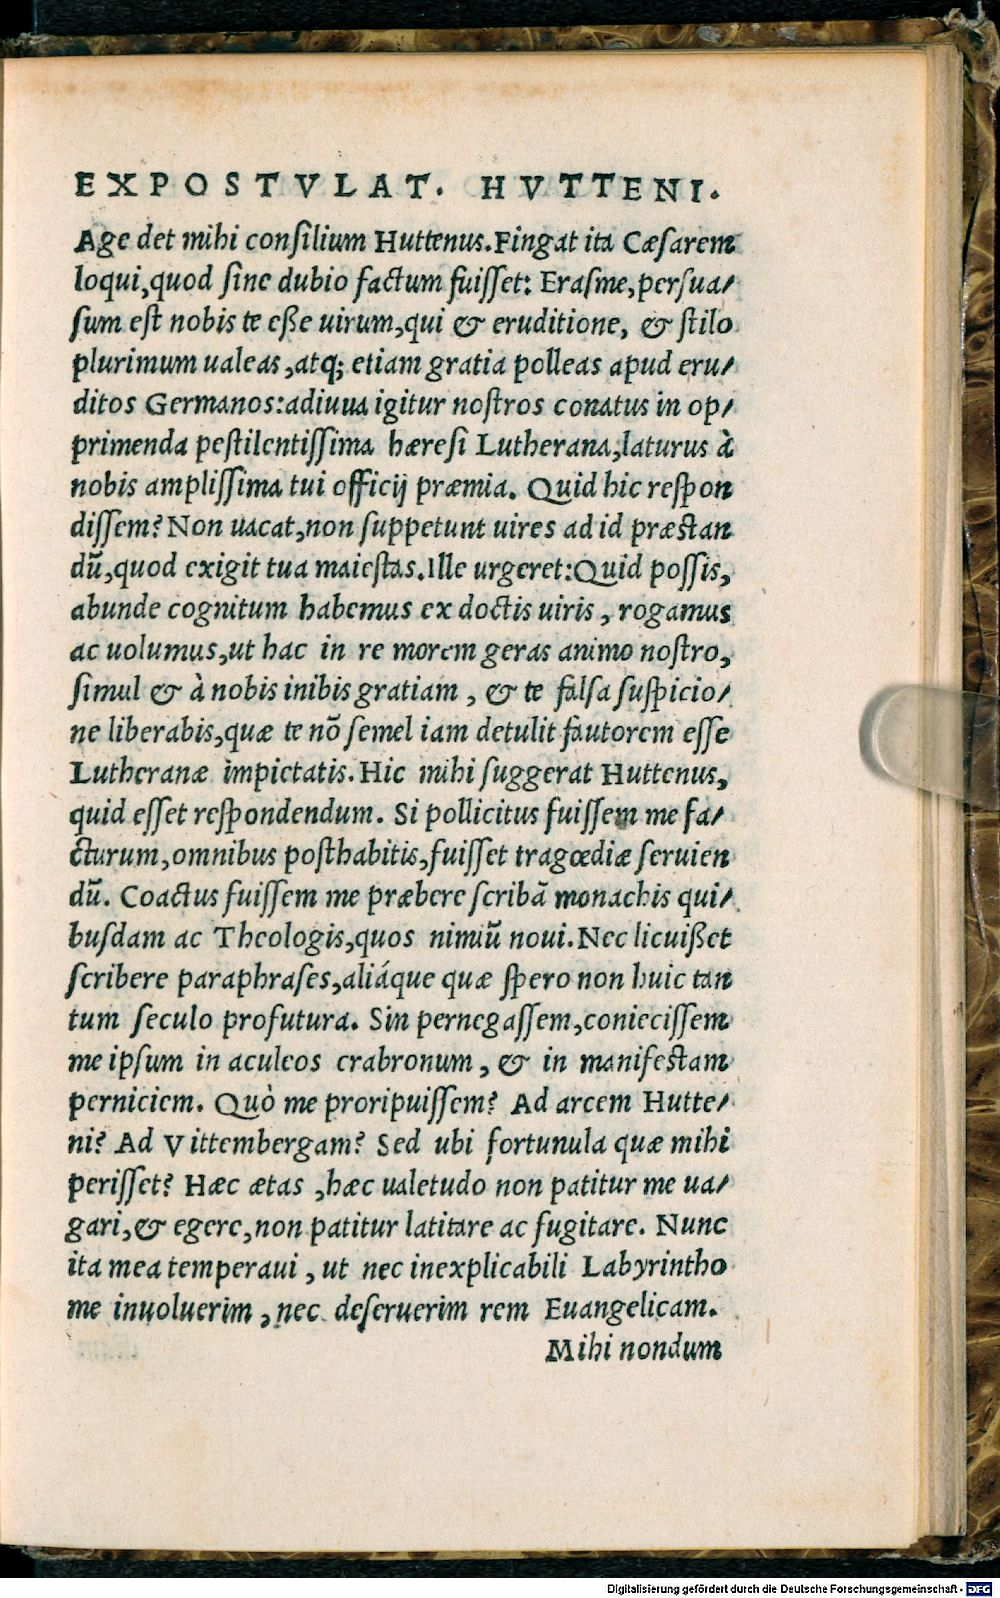 EXPOSTVLAT. HVTTENI.
Age det mihi consilium Huttenus. Fingat ita Cæsarem
loqui, quod sine dubio factum fuisset: Erasme, persua/
sum est nobis te eße uirum, qui & eruditione, & stilo
plurimum ualeas, atq; etiam gratia polleas apud eru/
ditos Germanos: adiuua igitur nostros conatus in op/
primenda pestilentissima hæresi Lutherana, laturus à
nobis amplissima tui officij præmia. Quid hic respon
dissem? Non uacat, non suppetunt uires ad id præstan
dū, quod exigit tua maiestas. Ille urgeret: Quid possis,
abunde cognitum habemus ex doctis uiris, rogamus
ac uolumus, ut hac in re morem geras animo nostro,
simul & à nobis inibis gratiam, & te falsa suspicio/
ne liberabis, quæ te nō semel iam detulit fautorem esse
Lutheranæ impietatis. Hic mihi suggerat Huttenus,
quid esset respondendum. Si pollicitus fuissem me fa/
cturum, omnibus posthabitis, fuisset tragœdiæ seruien
dū. Coactus fuissem me præbere scribā monachis qui/
busdam ac Theologis, quos nimiū noui. Nec licuißet
scribere paraphrases, aliáque quæ spero non huic tan
tum seculo profutura. Sin pernegassem, coniecissem
me ipsum in aculeos crabronum, & in manifestam
perniciem. Quò me proripuissem? Ad arcem Hutte/
ni? Ad Vittembergam? Sed ubi fortunula quæ mihi
perisset? Hæc ætas, hæc ualetudo non patitur me ua/
gari, & egere, non patitur latitare ac fugitare. Nunc
ita mea temperaui, ut nec inexplicabili Labyrintho
me inuoluerim, nec deseruerim rem Euangelicam.
Mihi nondum
Digitalisierung gefördert durch die Deutsche Forschungsgemeinschaft - DFG